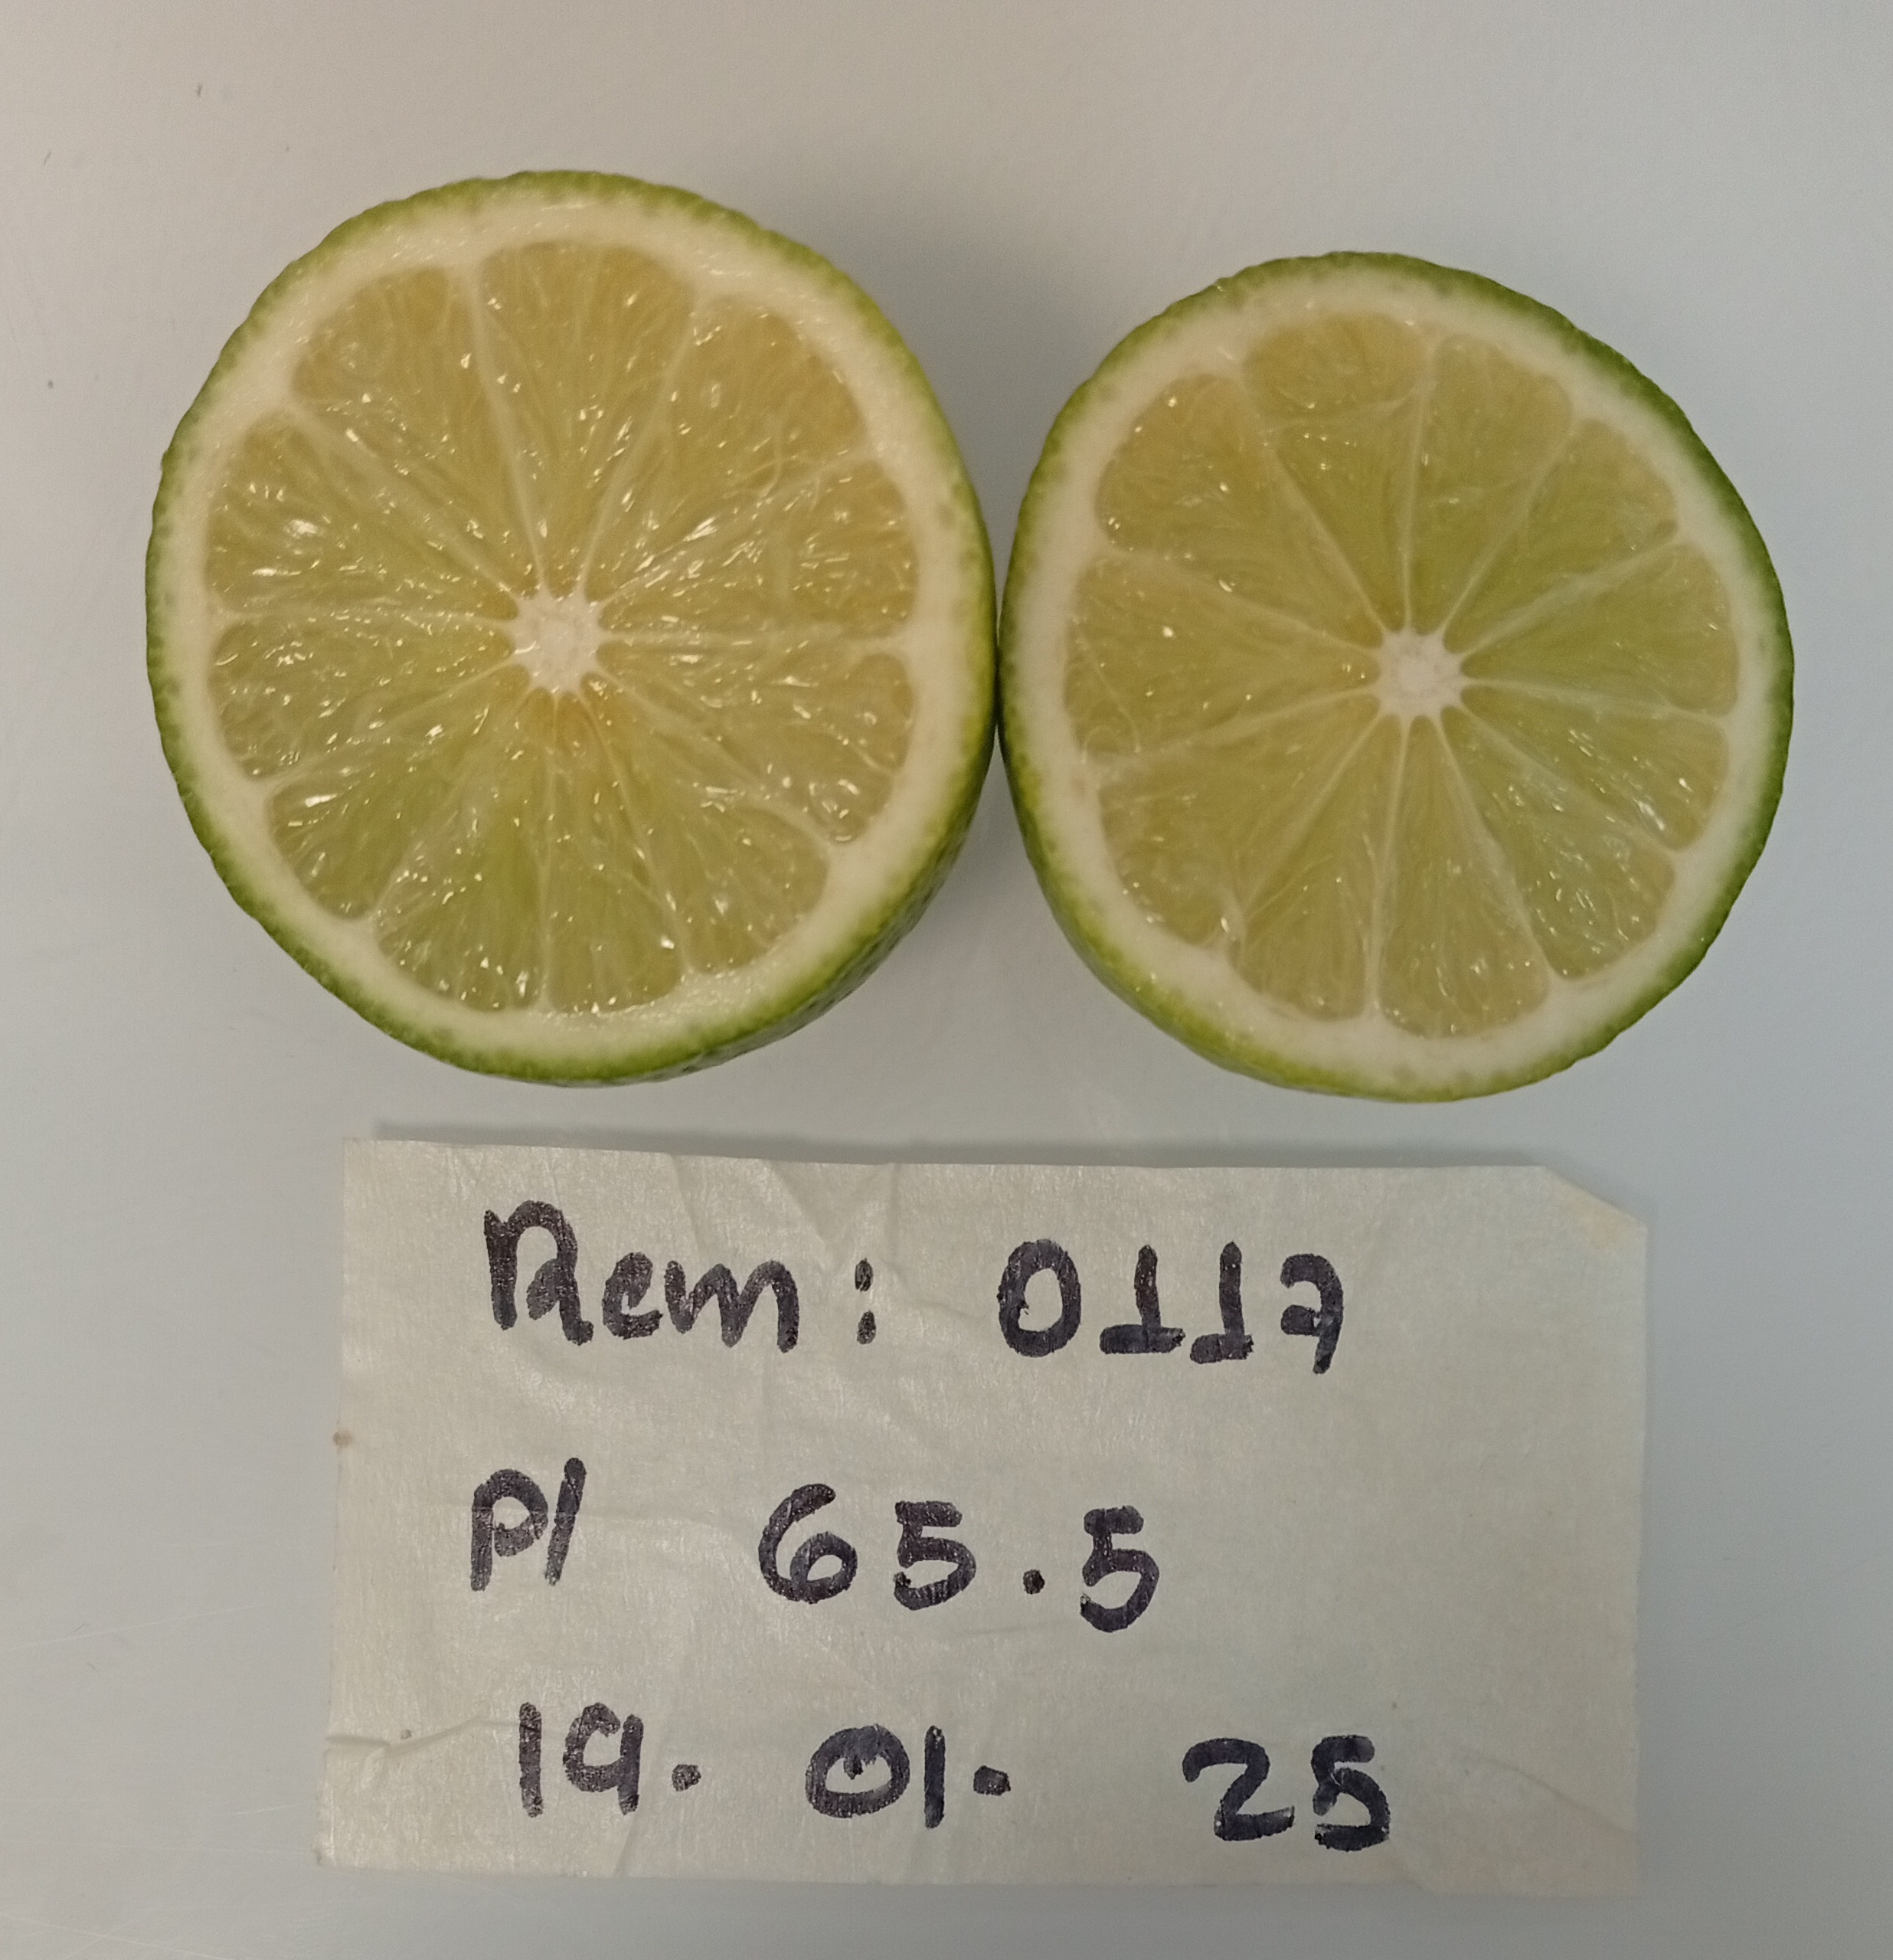 Rem: 0117
P/ 65.5
19. 01. 25